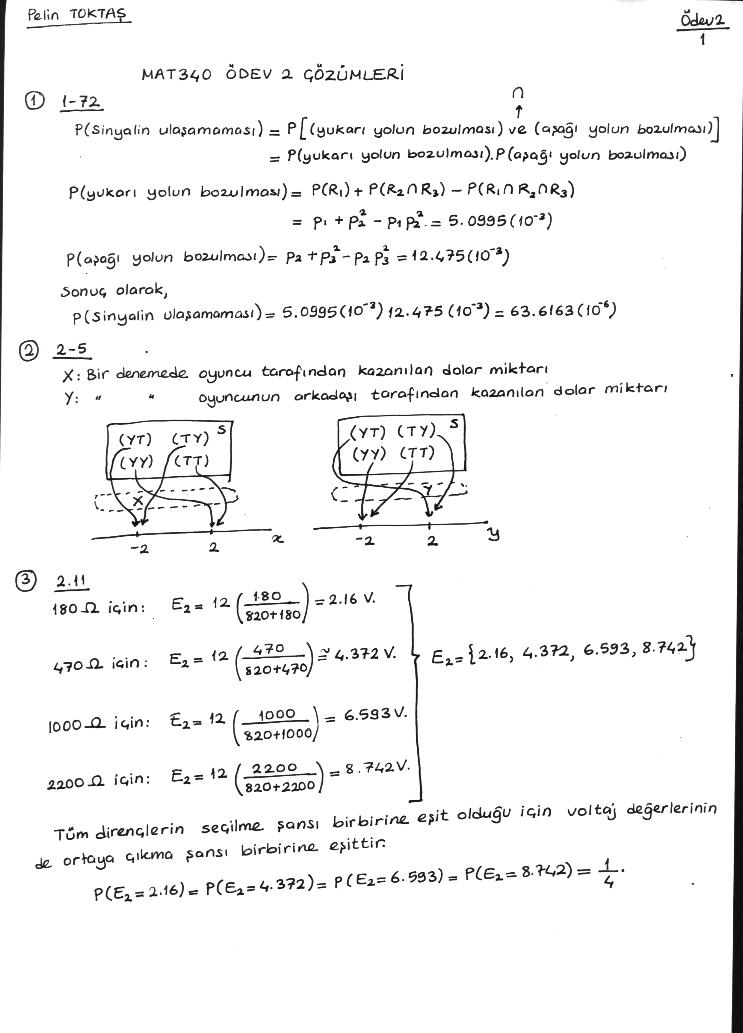 Pelin TOKTAŞ
Ödev2
1
MAT340 ÖDEV 2 ÇÖZÜMLERİ
① 1-72
∩
↑
P(Sinyalin ulaşamaması) = P[(yukarı yolun bozulması) ve (aşağı yolun bozulması)]
= P(yukarı yolun bozulması).P(aşağı yolun bozulması)
P(yukarı yolun bozulması) = P(R₁) + P(R₂∩R₃) − P(R₁∩R₂∩R₃)
= p₁ + p₂² − p₁p₂² = 5.0995(10⁻³)
P(aşağı yolun bozulması) = p₂ + p₃² − p₂p₃² = 12.475(10⁻³)
Sonuç olarak,
P(Sinyalin ulaşamaması) = 5.0995(10⁻³) 12.475(10⁻³) = 63.6163(10⁻⁶)
② 2-5
X: Bir denemede oyuncu tarafından kazanılan dolar miktarı
Y: " " oyuncunun arkadaşı tarafından kazanılan dolar miktarı
(YT) (TY) S
(YY) (TT)
X
-2 2 x
(YT) (TY) S
(YY) (TT)
Y
-2 2 y
③ 2.11
180Ω için: E₂ = 12 (180/(820+180)) = 2.16 V.
470Ω için: E₂ = 12 (470/(820+470)) ≅ 4.372 V.
E₂ = {2.16, 4.372, 6.593, 8.742}
1000Ω için: E₂ = 12 (1000/(820+1000)) = 6.593 V.
2200Ω için: E₂ = 12 (2200/(820+2200)) = 8.742 V.
Tüm dirençlerin seçilme şansı birbirine eşit olduğu için voltaj değerlerinin
de ortaya çıkma şansı birbirine eşittir.
P(E₂=2.16) = P(E₂=4.372) = P(E₂=6.593) = P(E₂=8.742) = 1/4.